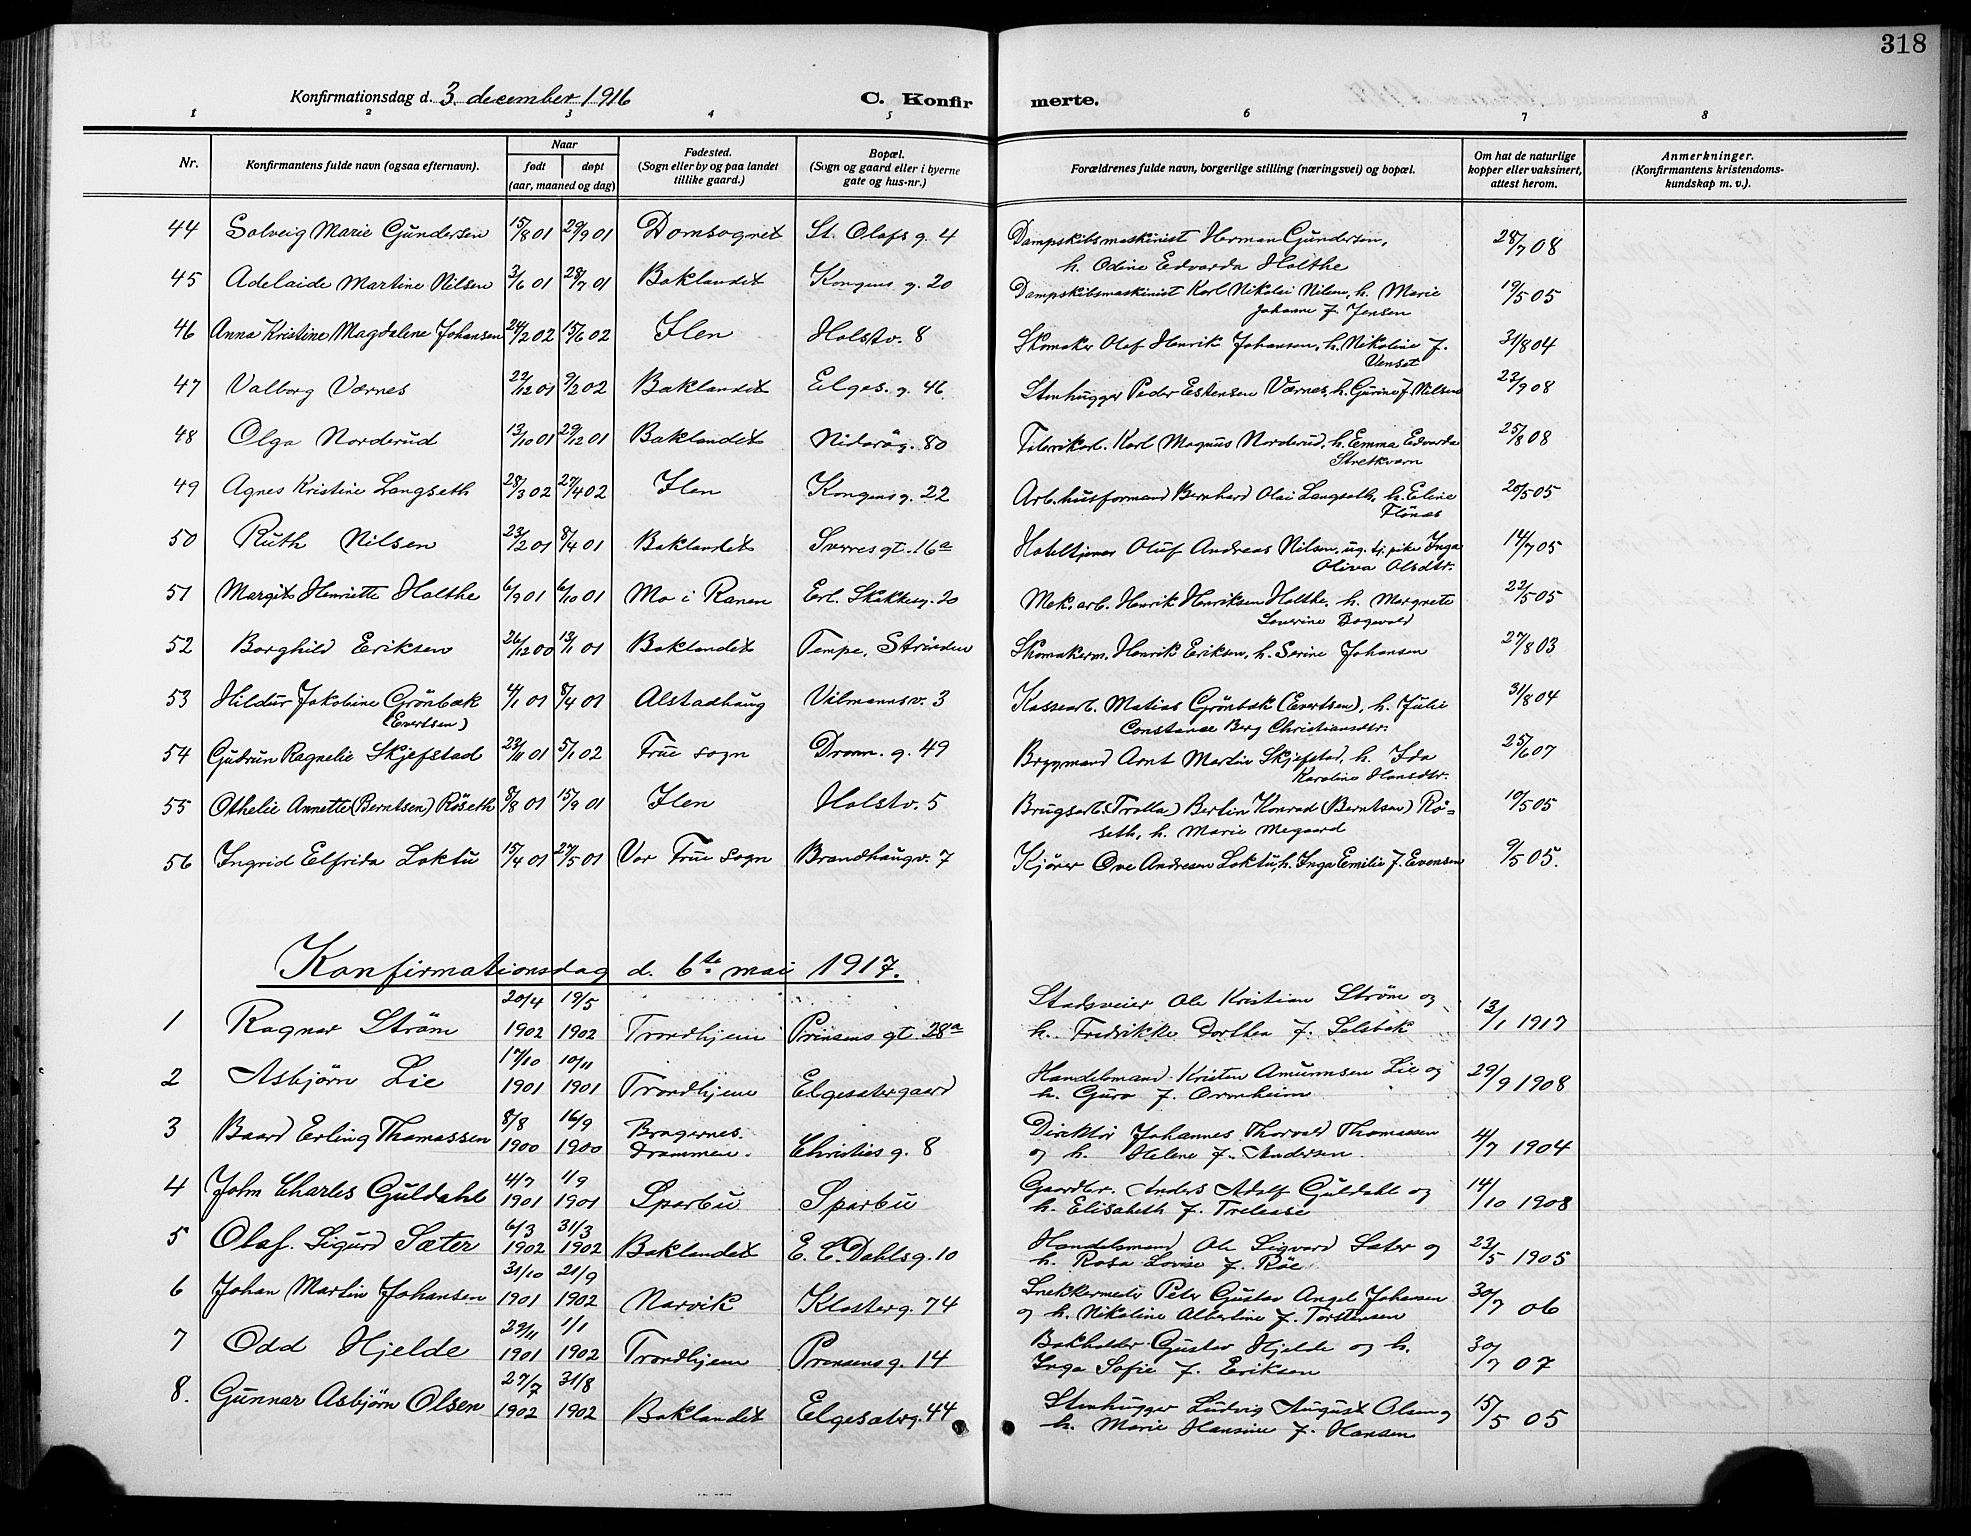 318
Konfirmationsdag d. 3. december 1916 C. Konfirmerte.
1 2 3 4 5 6 7 8
Nr. Konfirmantens fulde navn (ogsaa efternavn). Naar født døpt (aar, maaned og dag) Fødested. (Sogn eller by og paa landet tillike gaard.) Bopæl. (Sogn og gaard eller i byerne gate og hus-nr.) Forældrenes fulde navn, borgerlige stilling (næringsvei) og bopæl. Om hat de naturlige kopper eller vaksinert, attest herom. Anmerkninger. (Konfirmantens kristendomskundskap m. v.).
44 Solveig Marie Gundersen 15/8 01 29/9 01 Domsognet St. Olafs g. 4 Dampskibsmaskinist Herman Gundersen, 28/7 08
h. Odine Edvarda Holthe
45 Adelaide Martine Nilsen 3/6 01 28/7 01 Baklandet Kongens g. 20 Dampskibsmaskinist Karl Nikolai Nilsen, h. Marie 19/5 05
Johanne f. Jensen
46 Anna Kristine Magdelene Johansen 24/2 02 15/6 02 Ilen Holstv. 8 Skomaker Olaf Henrik Johansen, h. Nikoline f. 31/8 04
Venset
47 Valborg Værnes 22/12 01 9/2 02 Baklandet Elges. g. 46 Stenhugger Peder Estensen Værnes, h. Gurine f. Nilsen 23/9 08
48 Olga Norderud 13/10 01 29/12 01 Baklandet Nidarög. 80 Karl Magnus Norderud, h. Emma Edvarda 25/8 08
49 Agnes Kristine Langseth 28/3 02 27/4 02 Ilen Kongens g. 22 Arb.husformand Bernhard Olai Langseth, h. Eline 20/5 05
Flönes
50 Ruth Nilsen 23/2 01 8/4 01 Baklandet Sverres gt. 16a Hoteltjener Oluf Andreas Nilsen, ug. tj. pike Inga 14/7 05
Oliva Olsdtr.
51 Margit Henriette Holthe 6/9 01 6/10 01 Mo i Ranen Erl. Skakkesg. 20 Mek. arb. Henrik Henriksen Holthe, h. Margrete 22/5 05
52 Borghild Eriksen 26/12 00 13/1 01 Baklandet Tempe, Strinden Skomakerm. Henrik Eriksen, h. Serine Johansen 27/8 03
53 Hildur Jakobine Grönbæk 4/1 01 8/4 01 Alstadhaug Vilmannsv. 3 Kassearb. Matias Grönbæk (Evertsen), h. Julie 31/8 04
(Evertsen) Constance Berg Christiansdtr.
54 Gudrun Ragnelie Skjefstad 23/11 01 5/1 02 Frue sogn Dronn. g. 49 Bryggmand Arnt Martin Skjefstad, h. Ida 25/6 07
Karoline Hansdtr.
55 Othelie Annette (Berntsen) Röseth 8/8 01 15/9 01 Ilen Holstv. 5 Brugsarb. (Trolla) Bertin Konrad (Berntsen) Rö= 10/5 05
seth, h. Marie Megaard
56 Ingrid Elfrida Loktu 15/4 01 27/5 01 Vor Frue sogn Brandhaugv. 7 Kjører Ove Andresen Loktu, h. Inga Emilie f. Evensen 9/5 05.
Konfirmationsdag d. 6te mai 1917.
20/4 19/5 Stadsveier Ole Kristian Strøm og
1 Ragnar Strøm 1902 1902 Trondhjem Prinsens gt. 28a h. Fredrikke Dorthea f. Selsbak 13/1 1917
17/10 10/11
2 Asbjørn Lie 1901 1901 Trondhjem Elgesætergaard Handelsmand Kristen Amundsen Lie og 29/9 1908
h. Guro f. Ormheim
3 Baard Erling Thomassen 8/8 1900 16/9 1900 Bragernes. Drammen. Christies g. 8 Direktør Johannes Thorvald Thomassen 4/7 1904
og h. Helene f. Andersen.
4 John Charles Guldahl 4/7 1901 1/9 1901 Sparbu Sparbu Gaardbr. Anders Adolf Guldahl og 14/10 1908
h. Elisabeth f. Trelease
5 Olaf. Sigurd Sæter 6/3 1902 31/3 1902 Baklandet E. C. Dahlsg. 10 Handelsmand Ole Sigvard Sæter og 23/5 1905
h. Rosa Lovise f. Röe
6 Johan Martin Johansen 31/10 1901 21/9 1902 Narvik Klosterg. 74 Snekkermester Peter Gustav Angel Johansen 30/7 06
og h. Nikoline Albertine f. Torstensen
7 Odd Hjelde 29/11 1901 1/1 1902 Trondhjem Prinsensg. 14 Bokholder Gustav Hjelde og h. 30/7 07
Inga Sofie f. Eriksen
8. Gunnar Asbjørn Olsen 27/7 1902 31/8 1902 Baklandet Elgesæterg. 44 Stenhugger Ludvig August Olsen og 15/5 05
h. Marie Hansine f. Hansen